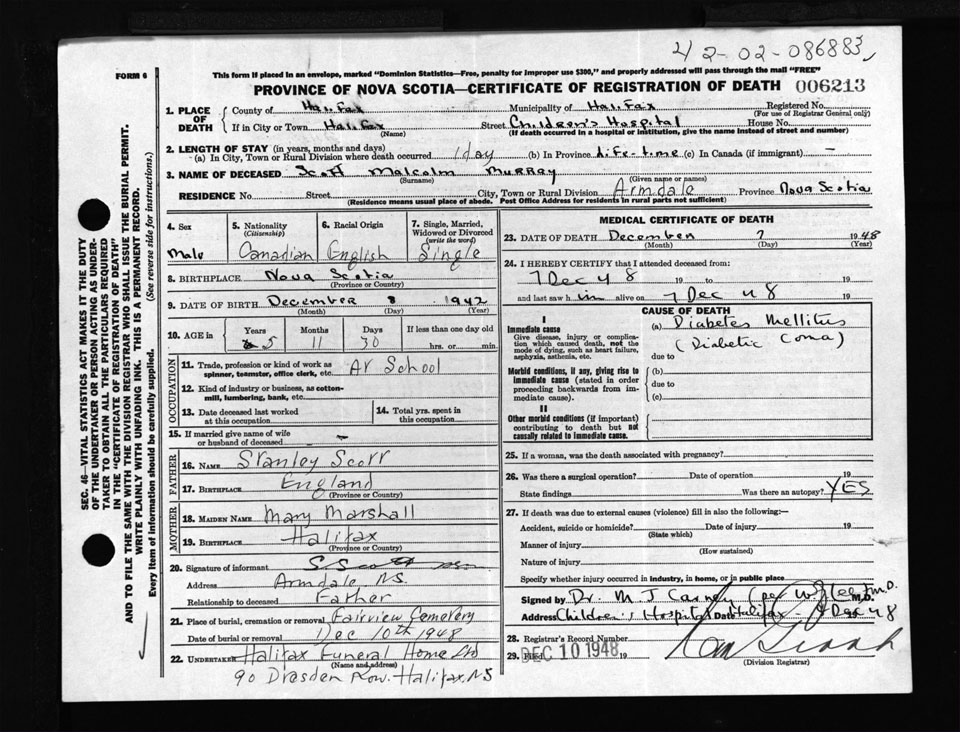 42-02-086883
FORM 6
This form if placed in an envelope, marked "Dominion Statistics—Free, penalty for improper use $300," and properly addressed will pass through the mail "FREE"
PROVINCE OF NOVA SCOTIA—CERTIFICATE OF REGISTRATION OF DEATH 006213
1. PLACE OF DEATH County of Halifax Municipality of Halifax Registered No.
(For use of Registrar General only)
If in City or Town Halifax Street Children's Hospital House No.
(Name) (If death occurred in a hospital or institution, give the name instead of street and number)
2. LENGTH OF STAY (in years, months and days)
(a) In City, Town or Rural Division where death occurred 1 day (b) In Province Life-time (c) In Canada (if immigrant) —
3. NAME OF DECEASED Scott Malcolm Murray
(Surname) (Given name or names)
RESIDENCE No. Street City, Town or Rural Division Armdale Province Nova Scotia
(Residence means usual place of abode. Post Office Address for residents in rural parts not sufficient)
SEC. 46—VITAL STATISTICS ACT MAKES IT THE DUTY
OF THE UNDERTAKER OR PERSON ACTING AS UNDER-
TAKER TO OBTAIN ALL THE PARTICULARS REQUIRED
IN THE "CERTIFICATE OF REGISTRATION OF DEATH"
AND TO FILE THE SAME WITH THE DIVISION REGISTRAR WHO SHALL ISSUE THE BURIAL PERMIT.
WRITE PLAINLY WITH UNFADING INK. THIS IS A PERMANENT RECORD.
Every item of information should be carefully supplied. (See reverse side for instructions.)
4. Sex
Male
5. Nationality
(Citizenship)
Canadian
6. Racial Origin
English
7. Single, Married, Widowed or Divorced
(write the word)
Single
8. BIRTHPLACE Nova Scotia
(Province or Country)
9. DATE OF BIRTH December 8 1942
(Month) (Day) (Year)
10. AGE in Years Months Days If less than one day old
5 11 30 hrs. or min.
OCCUPATION
11. Trade, profession or kind of work as
spinner, teamster, office clerk, etc. At School
12. Kind of industry or business, as cotton-
mill, lumbering, bank, etc.
13. Date deceased last worked
at this occupation
14. Total yrs. spent in
this occupation
15. If married give name of wife
or husband of deceased —
FATHER
16. NAME Stanley Scott
17. BIRTHPLACE England
(Province or Country)
MOTHER
18. MAIDEN NAME Mary Marshall
19. BIRTHPLACE Halifax
(Province or Country)
20. Signature of informant S Scott
Address Armdale, N.S.
Relationship to deceased Father
21. Place of burial, cremation or removal Fairview Cemetery
Date of burial or removal Dec 10th 1948
22. UNDERTAKER Halifax Funeral Home Ltd
(Name and address)
90 Dresden Row. Halifax, NS
MEDICAL CERTIFICATE OF DEATH
23. DATE OF DEATH December 7 1948
(Month) (Day) (Year)
24. I HEREBY CERTIFY that I attended deceased from:
7 Dec 48 19 to 19
and last saw him alive on 7 Dec 48 19
CAUSE OF DEATH
I
Immediate cause
Give disease, injury or complica-
tion which caused death, not the
mode of dying, such as heart failure,
asphyxia, asthenia, etc.
(a) Diabetes Mellitus
(Diabetic Coma)
due to
Morbid conditions, if any, giving rise to
immediate cause (stated in order
proceeding backwards from im-
mediate cause).
(b)
due to
(c)
II
Other morbid conditions (if important)
contributing to death but not
causally related to immediate cause.
25. If a woman, was the death associated with pregnancy?
26. Was there a surgical operation? Date of operation 19
State findings Was there an autopsy? YES
27. If death was due to external causes (violence) fill in also the following:—
Accident, suicide or homicide? Date of injury 19
(State which)
Manner of injury
(How sustained)
Nature of injury
Specify whether injury occurred in industry, in home, or in public place
Signed by Dr. M J Carney (per M.D.
Address Children's Hospital Halifax Date 8 Dec 48
28. Registrar's Record Number
29. Filed DEC 10 1948 19
(Division Registrar)